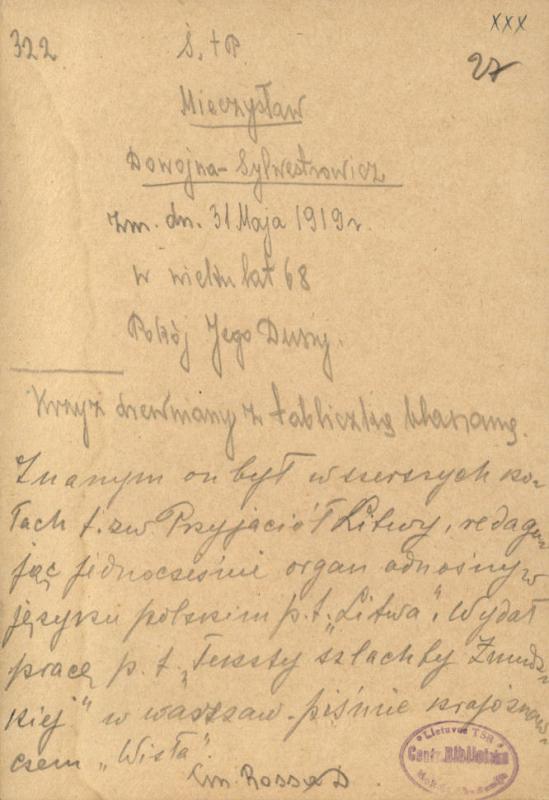 322
xxx
27
Ś. † P.
Mieczysław
Dowojna-Sylwestrowicz
zm. dn. 31 Maja 1919 r.
w wieku lat 68
Pokój Jego Duszy.
Krzyż drewniany z tabliczką blaszaną.
Znanym on był w szerszych ko-
łach t. zw. Przyjaciół Litwy, redagu-
jąc jednocześnie organ odnośny w
języku polskim p. t. "Litwa". Wydał
pracę p. t. "Teksty szlachty Żmudz-
kiej" w warszaw. piśmie krajoznaw-
czem "Wisła".
Cm. Rossa
Lietuvos TSR
Centr. Biblioteka